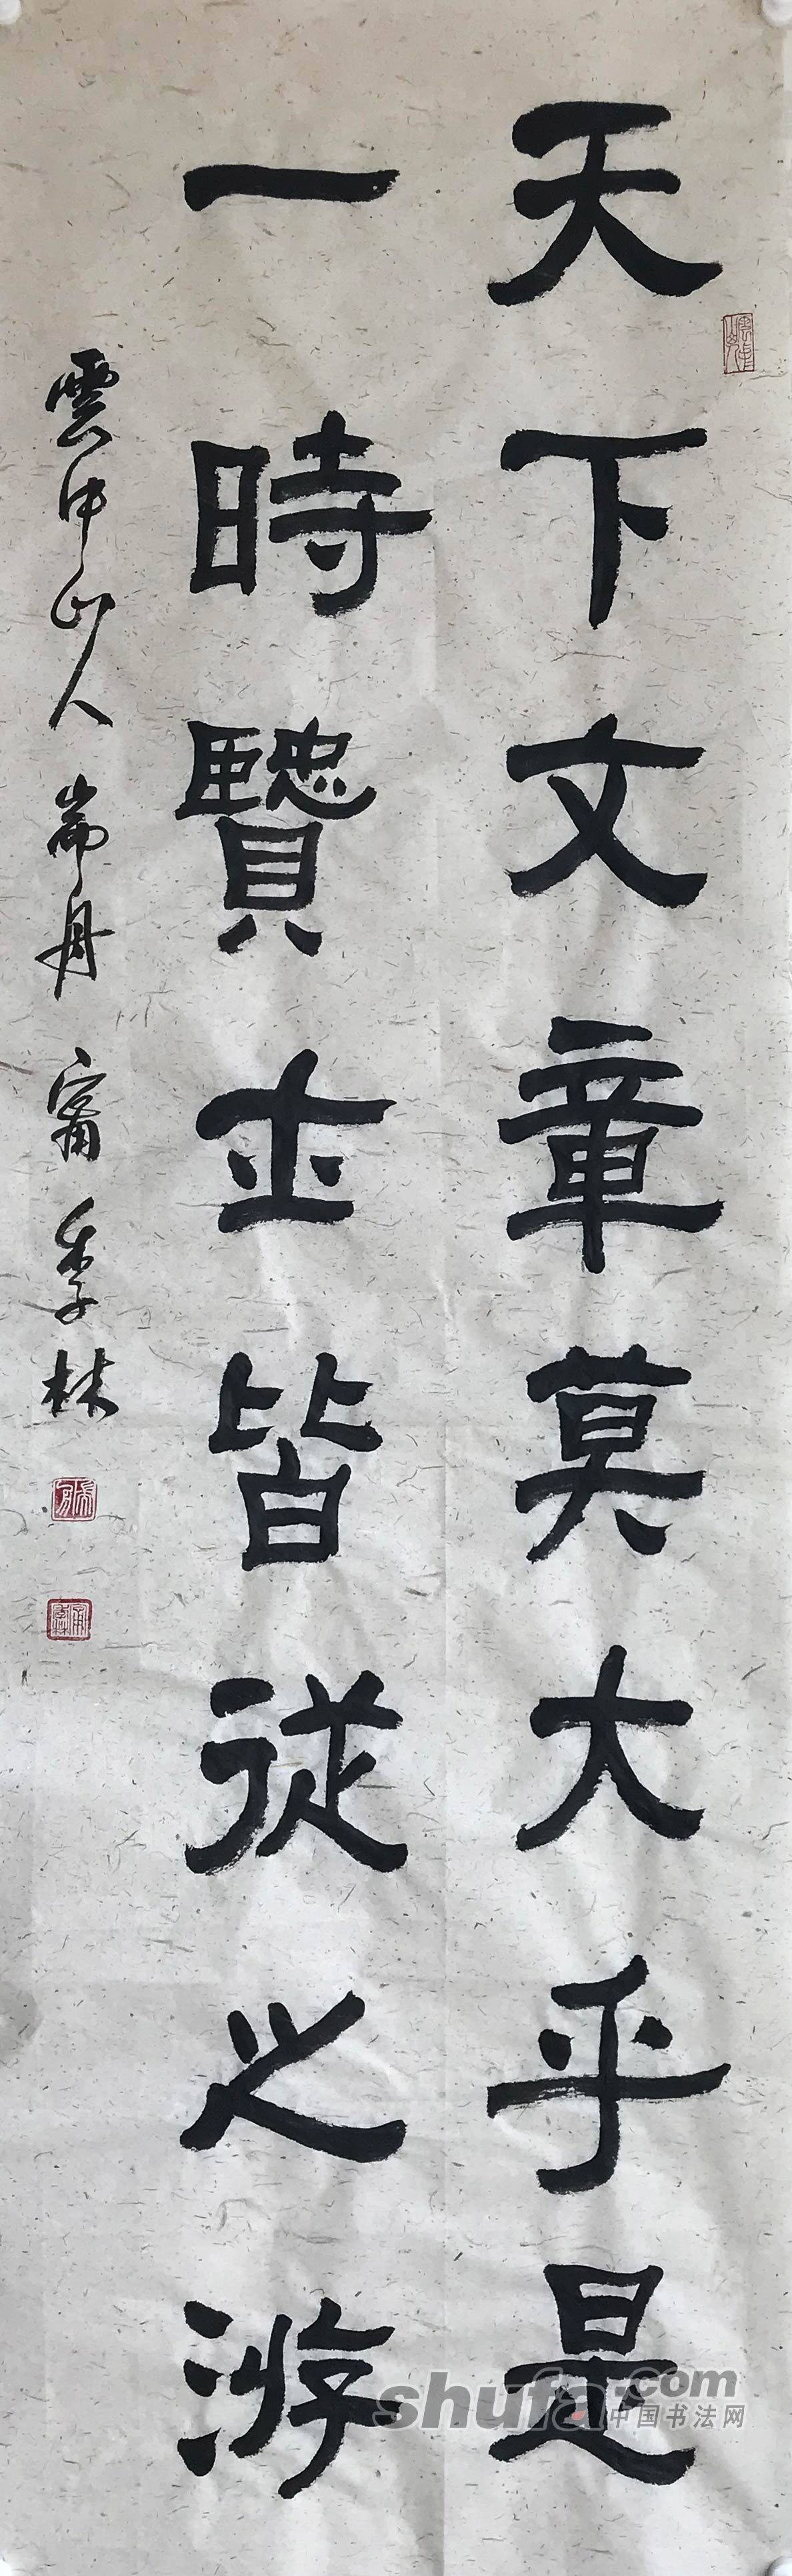 天下文章莫大乎是
一時賢士皆從之游
雲中山人 耑丹 甯季林
shufa.com
中国书法网